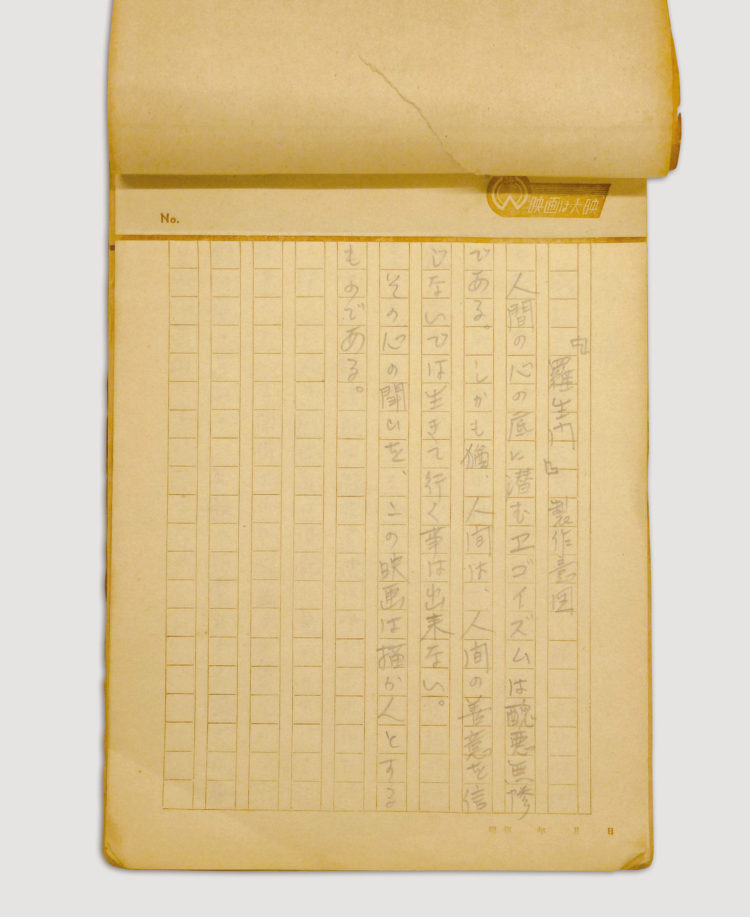 No.
映画は大映
『羅生門』製作意図
人間の心の底に潜むエゴイズムは醜悪無惨
である。しかも猶、人間は、人間の善意を信
じないでは生きて行く事は出来ない。
その心の闘いを、この映画は描か人とする
ものである。
年 月 日